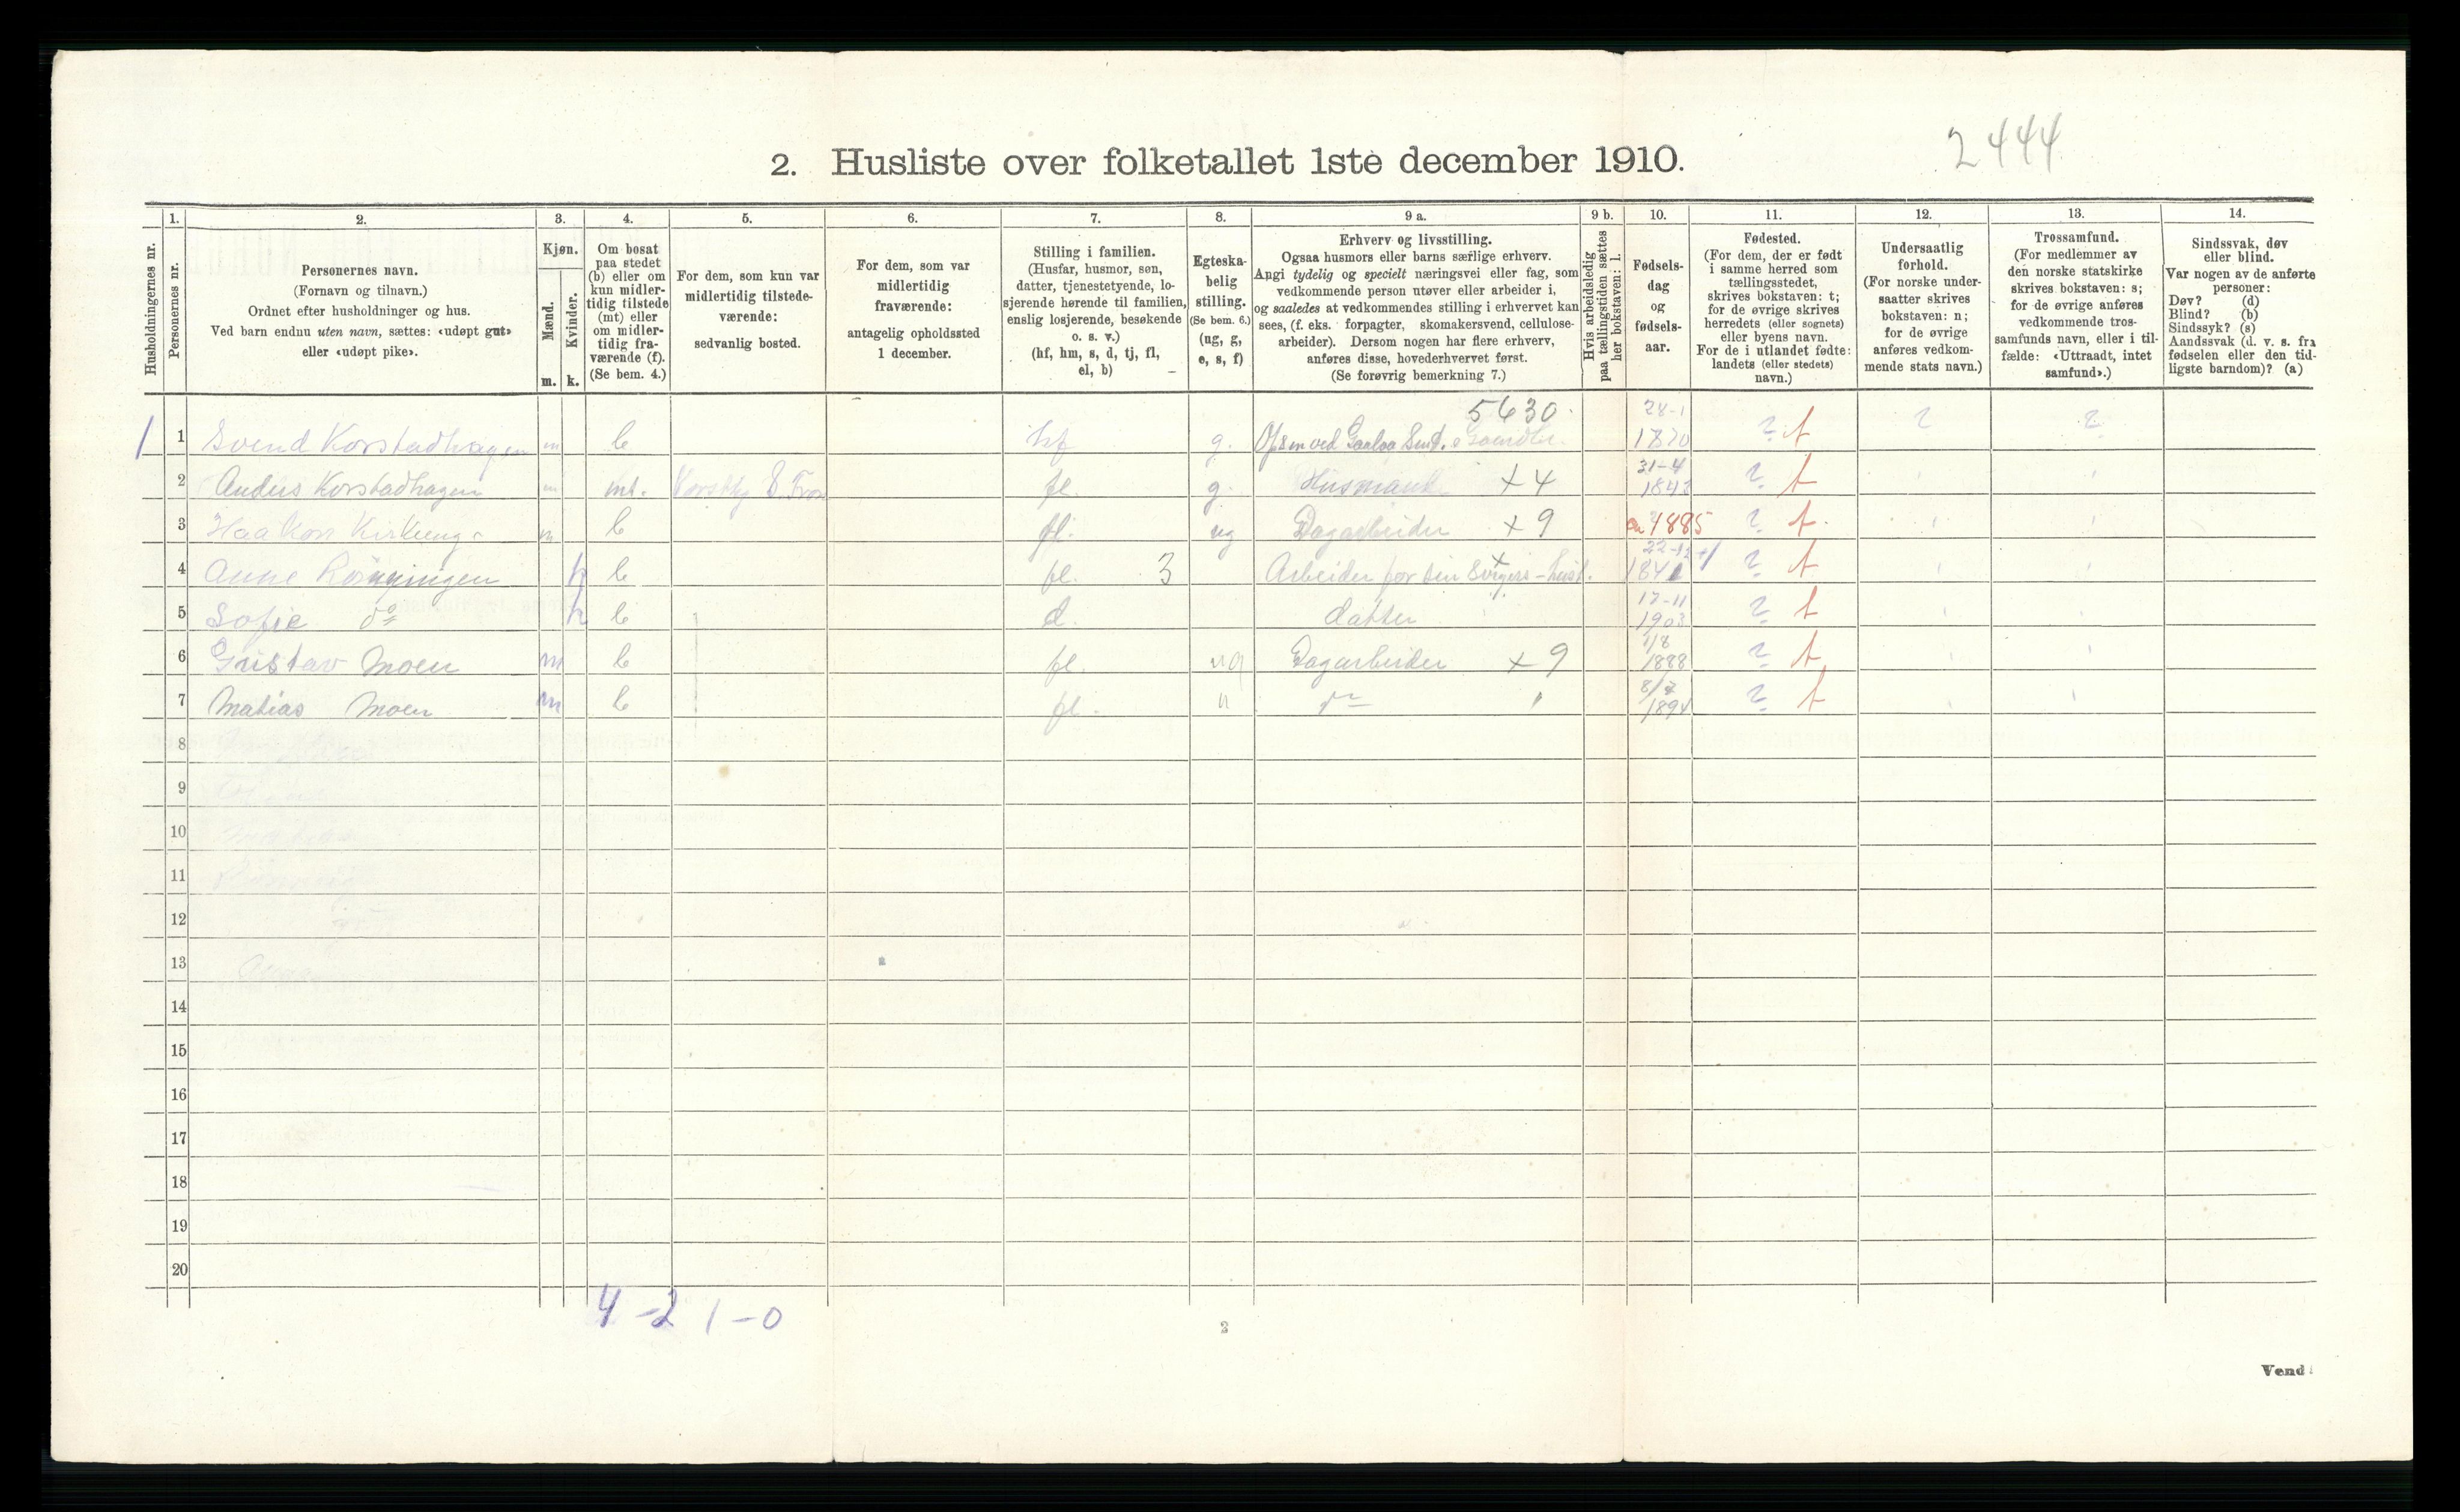 2444
2. Husliste over folketallet 1ste december 1910.
1. 2. 3. 4. 5. 6. 7. 8. 9 a. 9 b. 10. 11. 12. 13. 14.
Husholdningernes nr.
Personernes nr.
Personernes navn.
(Fornavn og tilnavn.)
Ordnet efter husholdninger og hus.
Ved barn endnu uten navn, sættes: «udøpt gut»
eller «udøpt pike».
Kjøn.
Mænd.
Kvinder.
m. k.
Om bosat
paa stedet
(b) eller om
kun midler-
tidig tilstede
(mt) eller
om midler-
tidig fra-
værende (f).
(Se bem. 4.)
For dem, som kun var
midlertidig tilstede-
værende:
sedvanlig bosted.
For dem, som var
midlertidig
fraværende:
antagelig opholdssted
1 december.
Stilling i familien.
(Husfar, husmor, søn,
datter, tjenestetyende, lo-
sjerende hørende til familien,
enslig losjerende, besøkende
o. s. v.)
(hf, hm, s, d, tj, fl,
el, b)
Egteska-
belig
stilling.
(Se bem. 6.)
(ug, g,
e, s, f)
Erhverv og livsstilling.
Ogsaa husmors eller barns særlige erhverv.
Angi tydelig og specielt næringsvei eller fag, som
vedkommende person utøver eller arbeider i,
og saaledes at vedkommendes stilling i erhvervet kan
sees, (f. eks. forpagter, skomakersvend, cellulose-
arbeider). Dersom nogen har flere erhverv,
anføres disse, hovederhvervet først.
(Se forøvrig bemerkning 7.)
Hvis arbeidsledig
paa tællingstiden sættes
her bokstaven: l.
Fødsels-
dag
og
fødsels-
aar.
Fødested.
(For dem, der er født
i samme herred som
tællingsstedet,
skrives bokstaven: t;
for de øvrige skrives
herredets (eller sognets)
eller byens navn.
For de i utlandet fødte:
landets (eller stedets)
navn.)
Undersaatlig
forhold.
(For norske under-
saatter skrives
bokstaven: n;
for de øvrige
anføres vedkom-
mende stats navn.)
Trossamfund.
(For medlemmer av
den norske statskirke
skrives bokstaven: s;
for de øvrige anføres
vedkommende tros-
samfunds navn, eller i til-
fælde: «Uttraadt, intet
samfund».)
Sindssvak, døv
eller blind.
Var nogen av de anførte
personer:
Døv? (d)
Blind? (b)
Sindssyk? (s)
Aandssvak (d. v. s. fra
fødselen eller den tid-
ligste barndom)? (a)
5630. 28-1
1 1 Svend Korstadhagen m b hf g. Opsm ved Gaalaa 1870 ? t ? ?
31-4
2 Anders Korstadhagen m mt. fl. g. Husmand x 4 ? t
3 Haakon m b fl. ug Dagarbeider x 9 1885 ? t.
4 Anne Rønningen k b fl. 3 Arbeider for sin ? t
17-11
5 Sofie do k b d. datter 1903 ? t
1/8
6 Gustav Moen m b fl. ug Dagarbeider x 9 1888 ? t
7 Matias Moen m b fl. " do " 1894 ? t
8
9
10
11
12
13
14
15
16
17
18
19
20
4 - 2 1 - 0
2
Vend